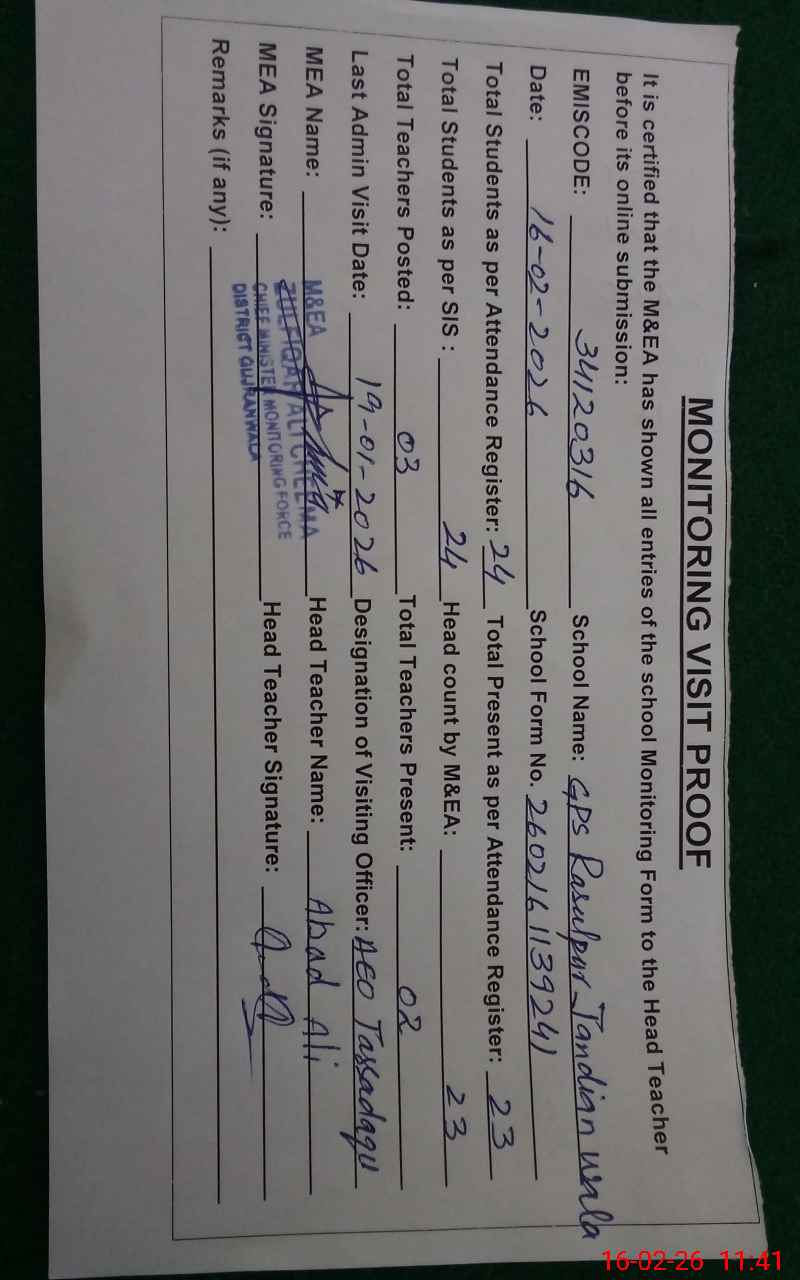 MONITORING VISIT PROOF
It is certified that the M&EA has shown all entries of the school Monitoring Form to the Head Teacher
before its online submission:
EMISCODE: 34120316 School Name: GPS Rasulpur Jandian wala
Date: 16-02-2026 School Form No. 2602161139241
Total Students as per Attendance Register: 24 Total Present as per Attendance Register: 23
Total Students as per SIS : 24 Head count by M&EA: 23
Total Teachers Posted: 03 Total Teachers Present: 02
Last Admin Visit Date: 19-01-2026 Designation of Visiting Officer: AEO Tassadaqu
MEA Name: M&EA Head Teacher Name: Abad Ali
ZULFIQAR ALI CHEEMA
MEA Signature: CHIEF MINISTER MONITORING FORCE Head Teacher Signature:
DISTRICT GUJRANWALA
Remarks (if any):
16-02-26 11:41